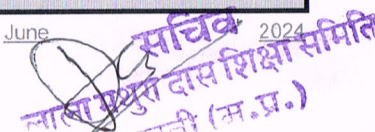 June 2024
सचिव
लाला मथुरा दास शिक्षा समिति
(म.प्र.)